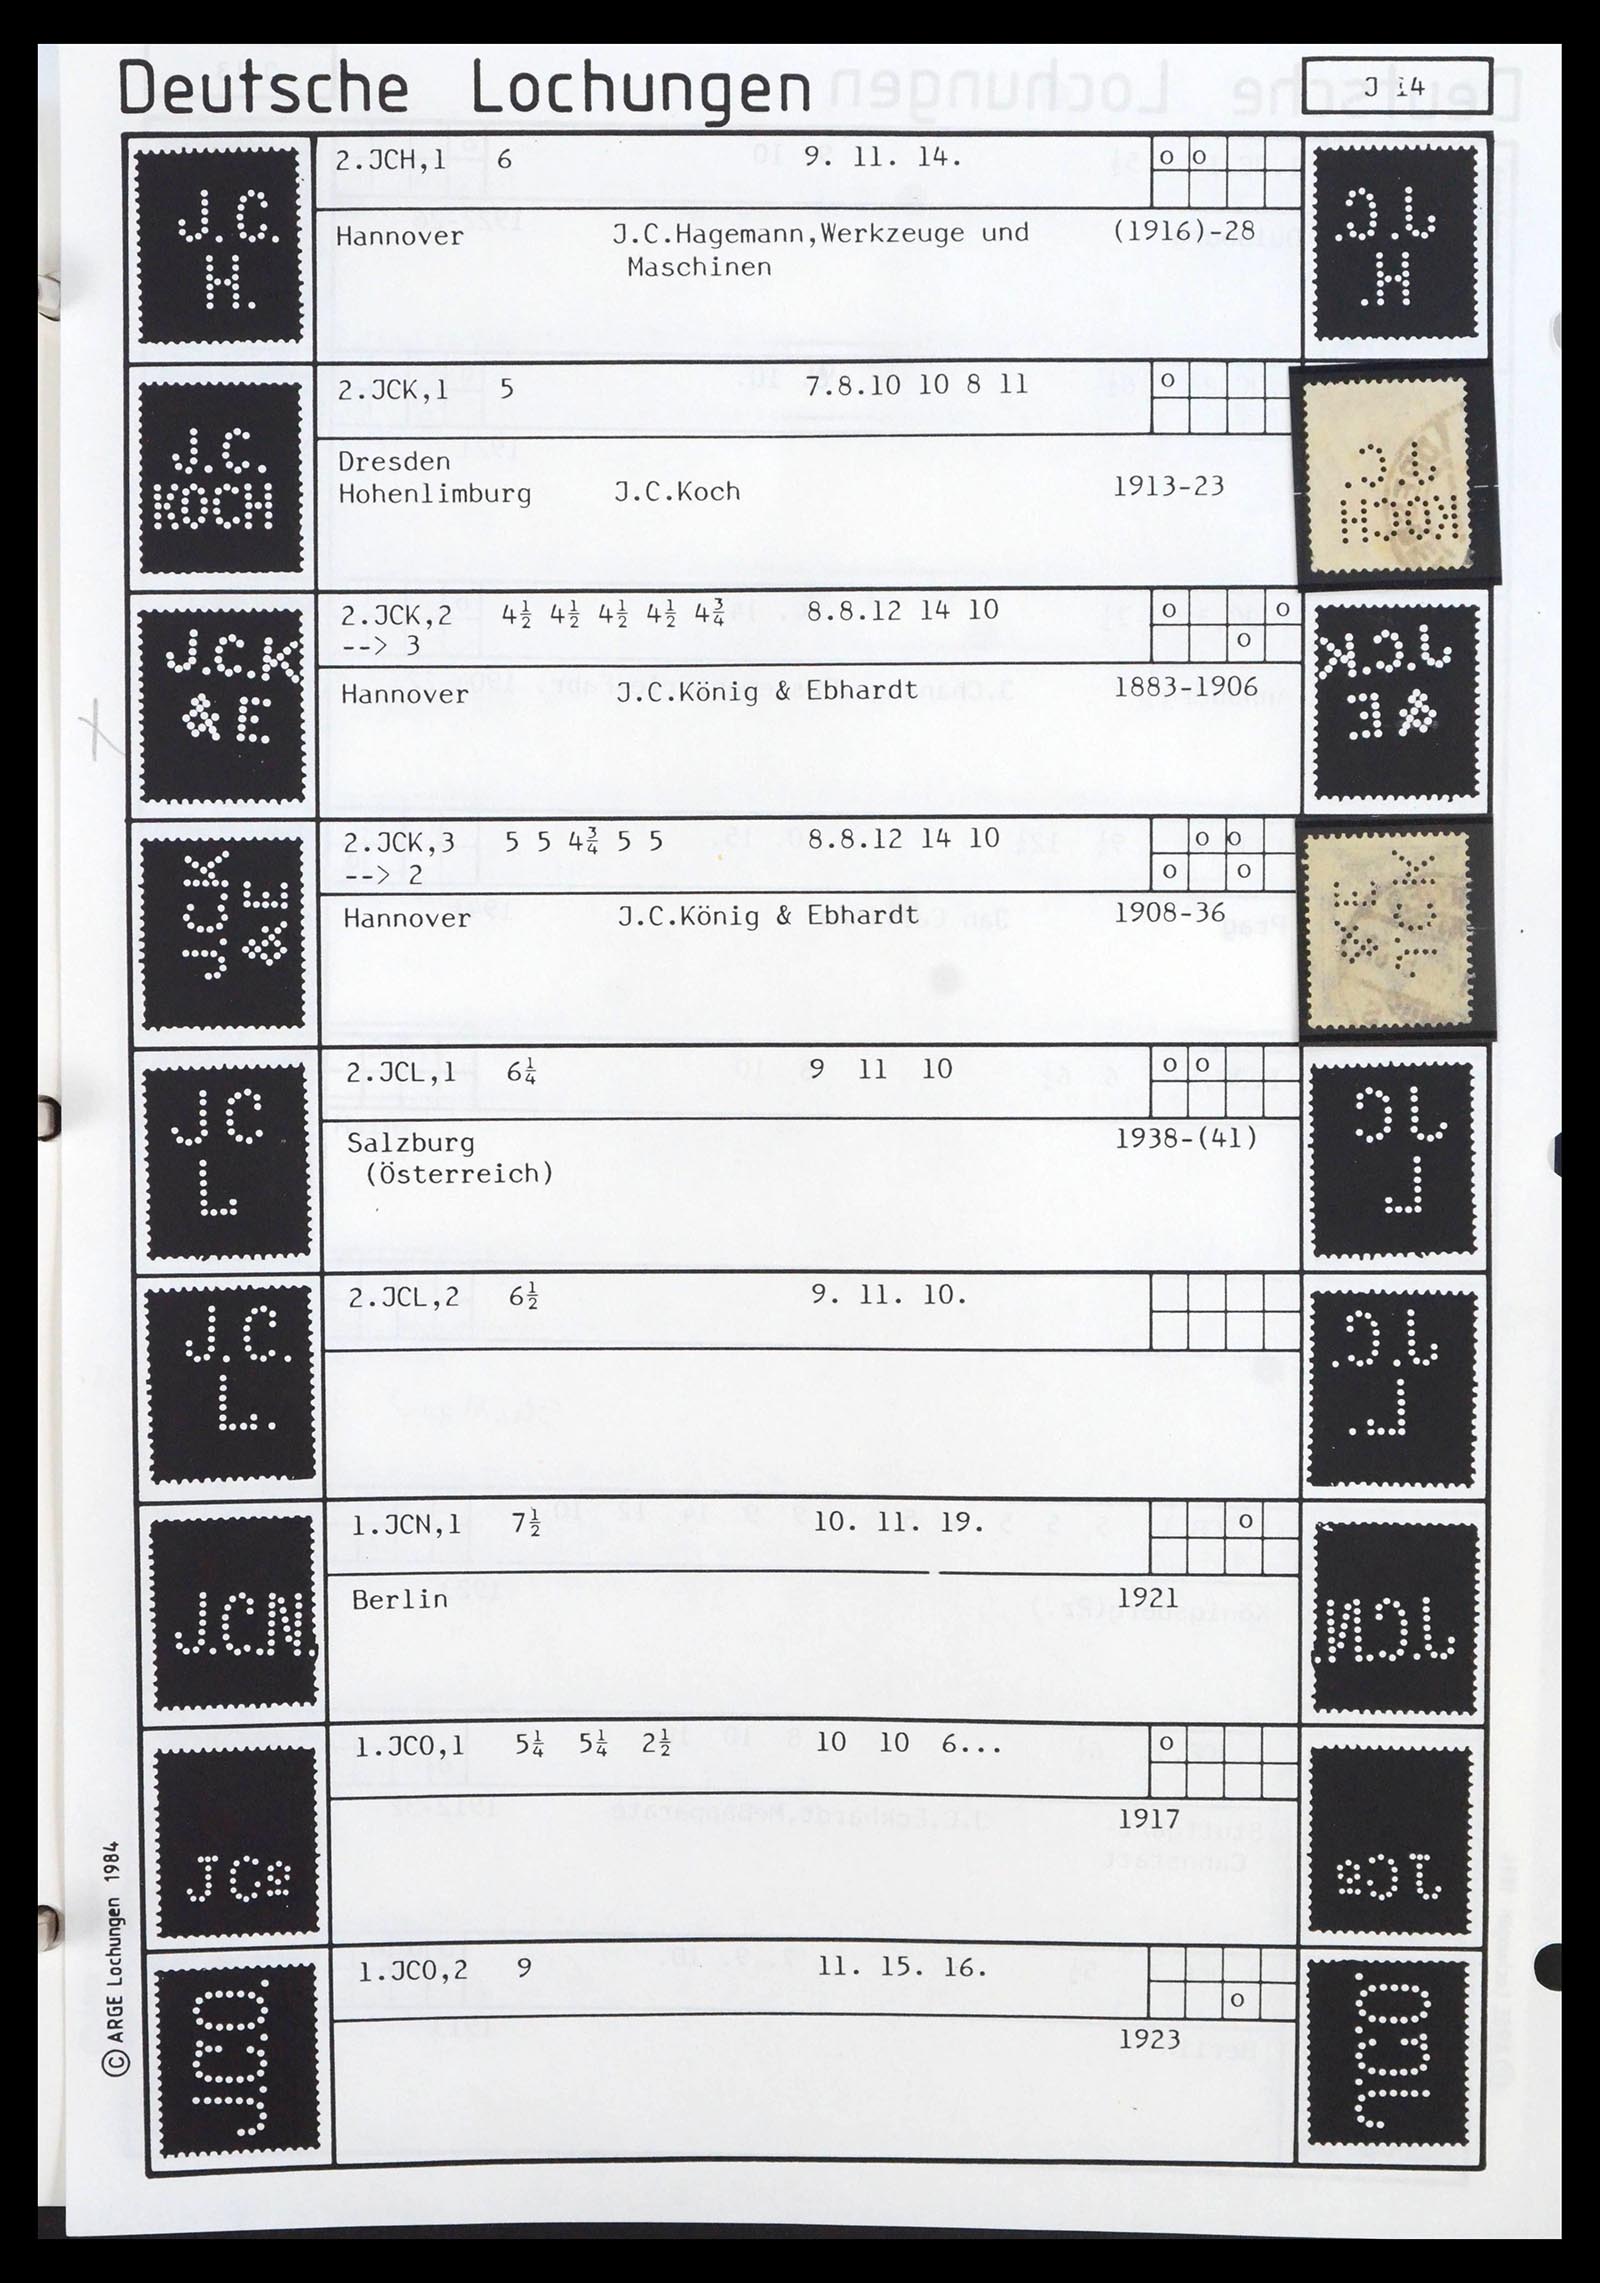 Deutsche Lochungen
J 14
J.C.
H.
2.JCH,1 6 9. 11. 14. o o
Hannover J.C.Hagemann,Werkzeuge und (1916)-28
Maschinen
J.C.
KOCH
2.JCK,1 5 7.8.10 10 8 11 o
Dresden
Hohenlimburg J.C.Koch 1913-23
J.C.K
&E
2.JCK,2 4½ 4½ 4½ 4½ 4¾ 8.8.12 14 10 o o
--> 3 o
Hannover J.C.König & Ebhardt 1883-1906
J.C.K
&E
2.JCK,3 5 5 4¾ 5 5 8.8.12 14 10 o o
--> 2 o o
Hannover J.C.König & Ebhardt 1908-36
JC
L
2.JCL,1 6¼ 9 11 10 o o
Salzburg 1938-(41)
(Österreich)
J.C.
L.
2.JCL,2 6½ 9. 11. 10.
J.C.N.
1.JCN,1 7½ 10. 11. 19. o
Berlin 1921
JCo
1.JCO,1 5¼ 5¼ 2½ 10 10 6... o
1917
J.C.O.
1.JCO,2 9 11. 15. 16.
o
1923
© ARGE Lochungen 1984